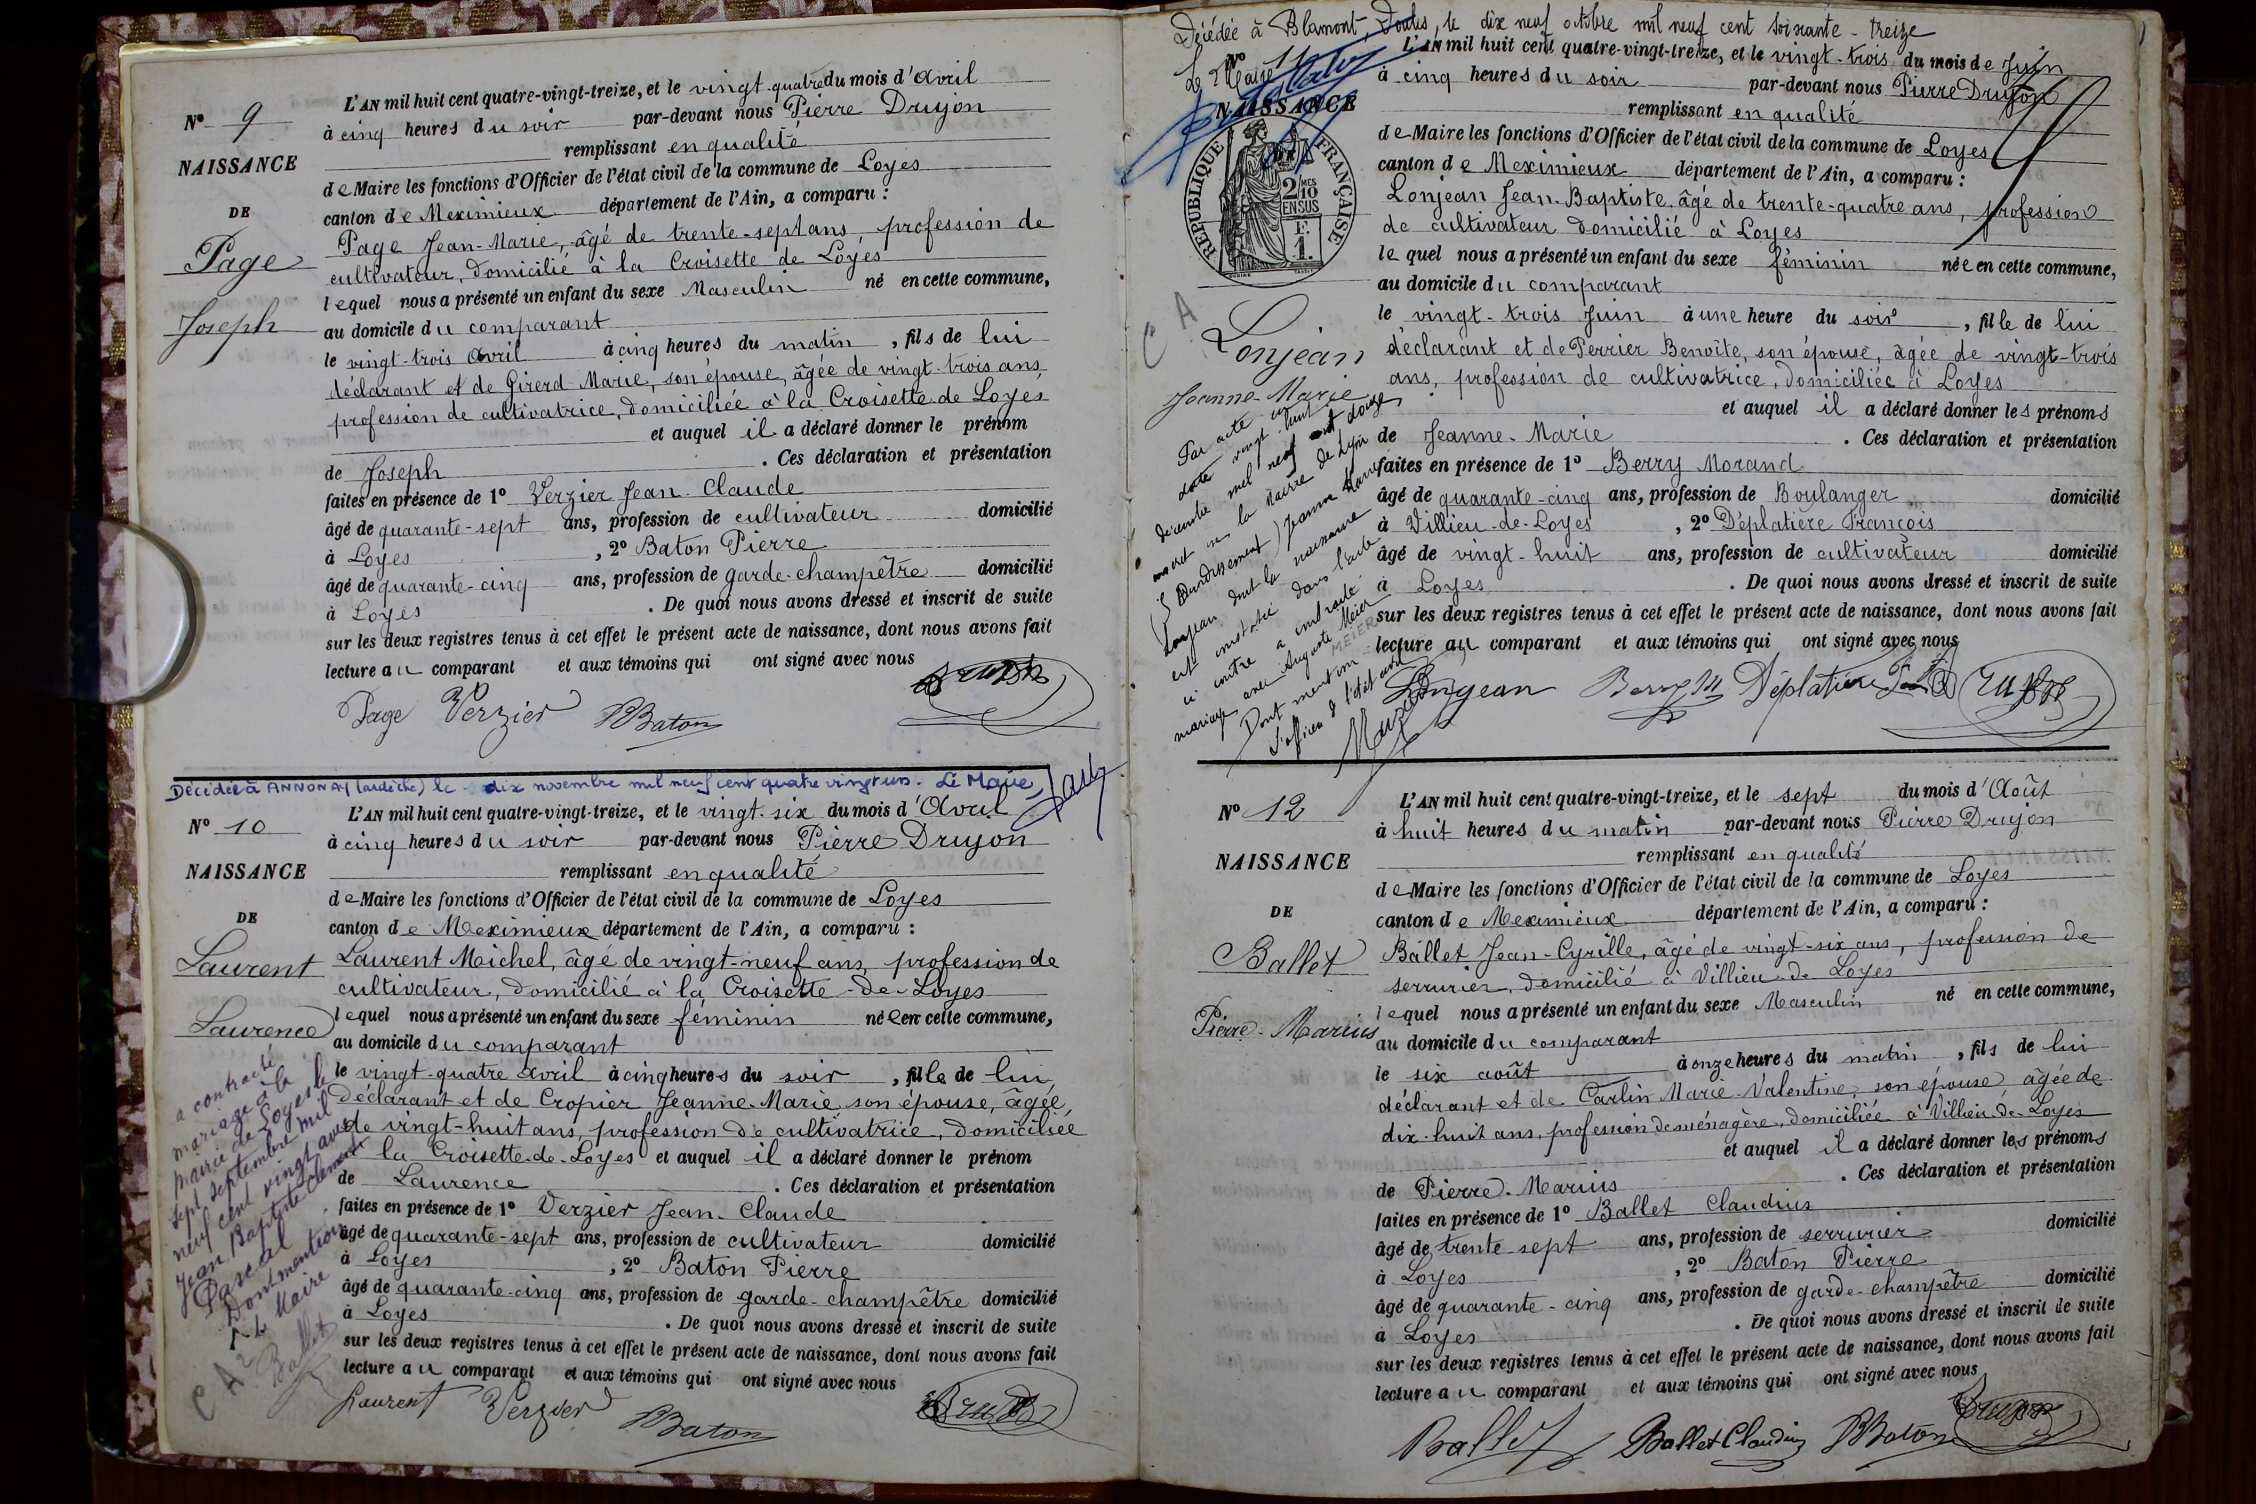 N° 9
NAISSANCE
DE
Page
Joseph
L'AN mil huit cent quatre-vingt-treize, et le vingt-quatre du mois d'Avril
à cinq heures du soir par-devant nous Pierre Drujon
remplissant en qualité
de Maire les fonctions d'Officier de l'état civil de la commune de Loyes
canton de Meximieux département de l'Ain, a comparu :
Page Jean-Marie, âgé de trente-sept ans, profession de
cultivateur, domicilié à la Croisette de Loyes
lequel nous a présenté un enfant du sexe Masculin né en cette commune,
au domicile du comparant
le vingt-trois Avril à cinq heures du matin, fils de lui
déclarant et de Girerd Marie, son épouse, âgée de vingt-trois ans,
profession de cultivatrice, domiciliée à la Croisette de Loyes
et auquel il a déclaré donner le prénom
de Joseph . Ces déclaration et présentation
faites en présence de 1° Verzier Jean-Claude
âgé de quarante-sept ans, profession de cultivateur domicilié
à Loyes , 2° Baton Pierre
âgé de quarante-cinq ans, profession de garde-champêtre domicilié
à Loyes . De quoi nous avons dressé et inscrit de suite
sur les deux registres tenus à cet effet le présent acte de naissance, dont nous avons fait
lecture au comparant et aux témoins qui ont signé avec nous
Page Verzier PBaton
Décédée à ANNONAY (ardèche) le dix novembre mil neuf cent quatre vingt un. Le Maire,
N° 10
NAISSANCE
DE
Laurent
Laurence
a contracté
mariage à la
mairie de Loyes le
sept septembre mil
neuf cent vingt avec
Jean Baptiste Clément
Pascal
Dont mention
Le Maire
Ballet
C A
L'AN mil huit cent quatre-vingt-treize, et le vingt-six du mois d'Avril
à cinq heures du soir par-devant nous Pierre Drujon
remplissant en qualité
de Maire les fonctions d'Officier de l'état civil de la commune de Loyes
canton de Meximieux département de l'Ain, a comparu :
Laurent Michel, âgé de vingt-neuf ans, profession de
cultivateur, domicilié à la Croisette-de-Loyes
lequel nous a présenté un enfant du sexe féminin née en cette commune,
au domicile du comparant
le vingt-quatre avril à cinq heures du soir, fille de lui
déclarant et de Cropier Jeanne-Marie son épouse, âgée
de vingt-huit ans, profession de cultivatrice, domiciliée
à la Croisette-de-Loyes et auquel il a déclaré donner le prénom
de Laurence . Ces déclaration et présentation
faites en présence de 1° Verzier Jean-Claude
âgé de quarante-sept ans, profession de cultivateur domicilié
à Loyes , 2° Baton Pierre
âgé de quarante-cinq ans, profession de garde-champêtre domicilié
à Loyes . De quoi nous avons dressé et inscrit de suite
sur les deux registres tenus à cet effet le présent acte de naissance, dont nous avons fait
lecture au comparant et aux témoins qui ont signé avec nous
Laurent Verzier PBaton
Décédée à Blamont, Doubs, le dix neuf octobre mil neuf cent soixante-treize
Le Maire
N° 11
NAISSANCE
DE
RÉPUBLIQUE FRANÇAISE
2/10 MES
EN SUS
F.
1.
C A
Lonjean
Jeanne-Marie
Par acte en
date vingt huit
décembre mil neuf cent douze
inscrit en la Mairie de Lyon
arrondissement) Jeanne Marie
Lonjean dont la naissance
est constatée dans l'acte
ci contre a contracté
mariage avec Auguste Meier
MEIER
Dont mention
L'officier de l'état civil
L'AN mil huit cent quatre-vingt-treize, et le vingt-trois du mois de Juin
à cinq heures du soir par-devant nous Pierre Drujon
remplissant en qualité
de Maire les fonctions d'Officier de l'état civil de la commune de Loyes
canton de Meximieux département de l'Ain, a comparu :
Lonjean Jean-Baptiste, âgé de trente-quatre ans, profession
de cultivateur domicilié à Loyes
lequel nous a présenté un enfant du sexe féminin née en cette commune,
au domicile du comparant
le vingt-trois Juin à une heure du soir, fille de lui
déclarant et de Perrier Benoîte, son épouse, âgée de vingt-trois
ans, profession de cultivatrice, domiciliée à Loyes
et auquel il a déclaré donner les prénoms
de Jeanne-Marie . Ces déclaration et présentation
faites en présence de 1° Berry Morand
âgé de quarante-cinq ans, profession de Boulanger domicilié
à Villieu-de-Loyes , 2° Déplatière François
âgé de vingt-huit ans, profession de cultivateur domicilié
à Loyes . De quoi nous avons dressé et inscrit de suite
sur les deux registres tenus à cet effet le présent acte de naissance, dont nous avons fait
lecture au comparant et aux témoins qui ont signé avec nous
Lonjean Berry M Déplatière
N° 12
NAISSANCE
DE
Ballet
Pierre-Marius
L'AN mil huit cent quatre-vingt-treize, et le sept du mois d'Août
à huit heures du matin par-devant nous Pierre Drujon
remplissant en qualité
de Maire les fonctions d'Officier de l'état civil de la commune de Loyes
canton de Meximieux département de l'Ain, a comparu :
Ballet Jean-Cyrille, âgé de vingt-six ans, profession de
serrurier, domicilié à Villieu-de-Loyes
lequel nous a présenté un enfant du sexe Masculin né en cette commune,
au domicile du comparant
le six août à onze heures du matin, fils de lui
déclarant et de Carlin Marie-Valentine, son épouse âgée de
dix-huit ans, profession de ménagère, domiciliée à Villieu-de-Loyes
et auquel il a déclaré donner les prénoms
de Pierre-Marius . Ces déclaration et présentation
faites en présence de 1° Ballet Claudius
âgé de trente-sept ans, profession de serrurier domicilié
à Loyes , 2° Baton Pierre
âgé de quarante-cinq ans, profession de garde-champêtre domicilié
à Loyes . De quoi nous avons dressé et inscrit de suite
sur les deux registres tenus à cet effet le présent acte de naissance, dont nous avons fait
lecture au comparant et aux témoins qui ont signé avec nous
Ballet Ballet Claudius PBaton